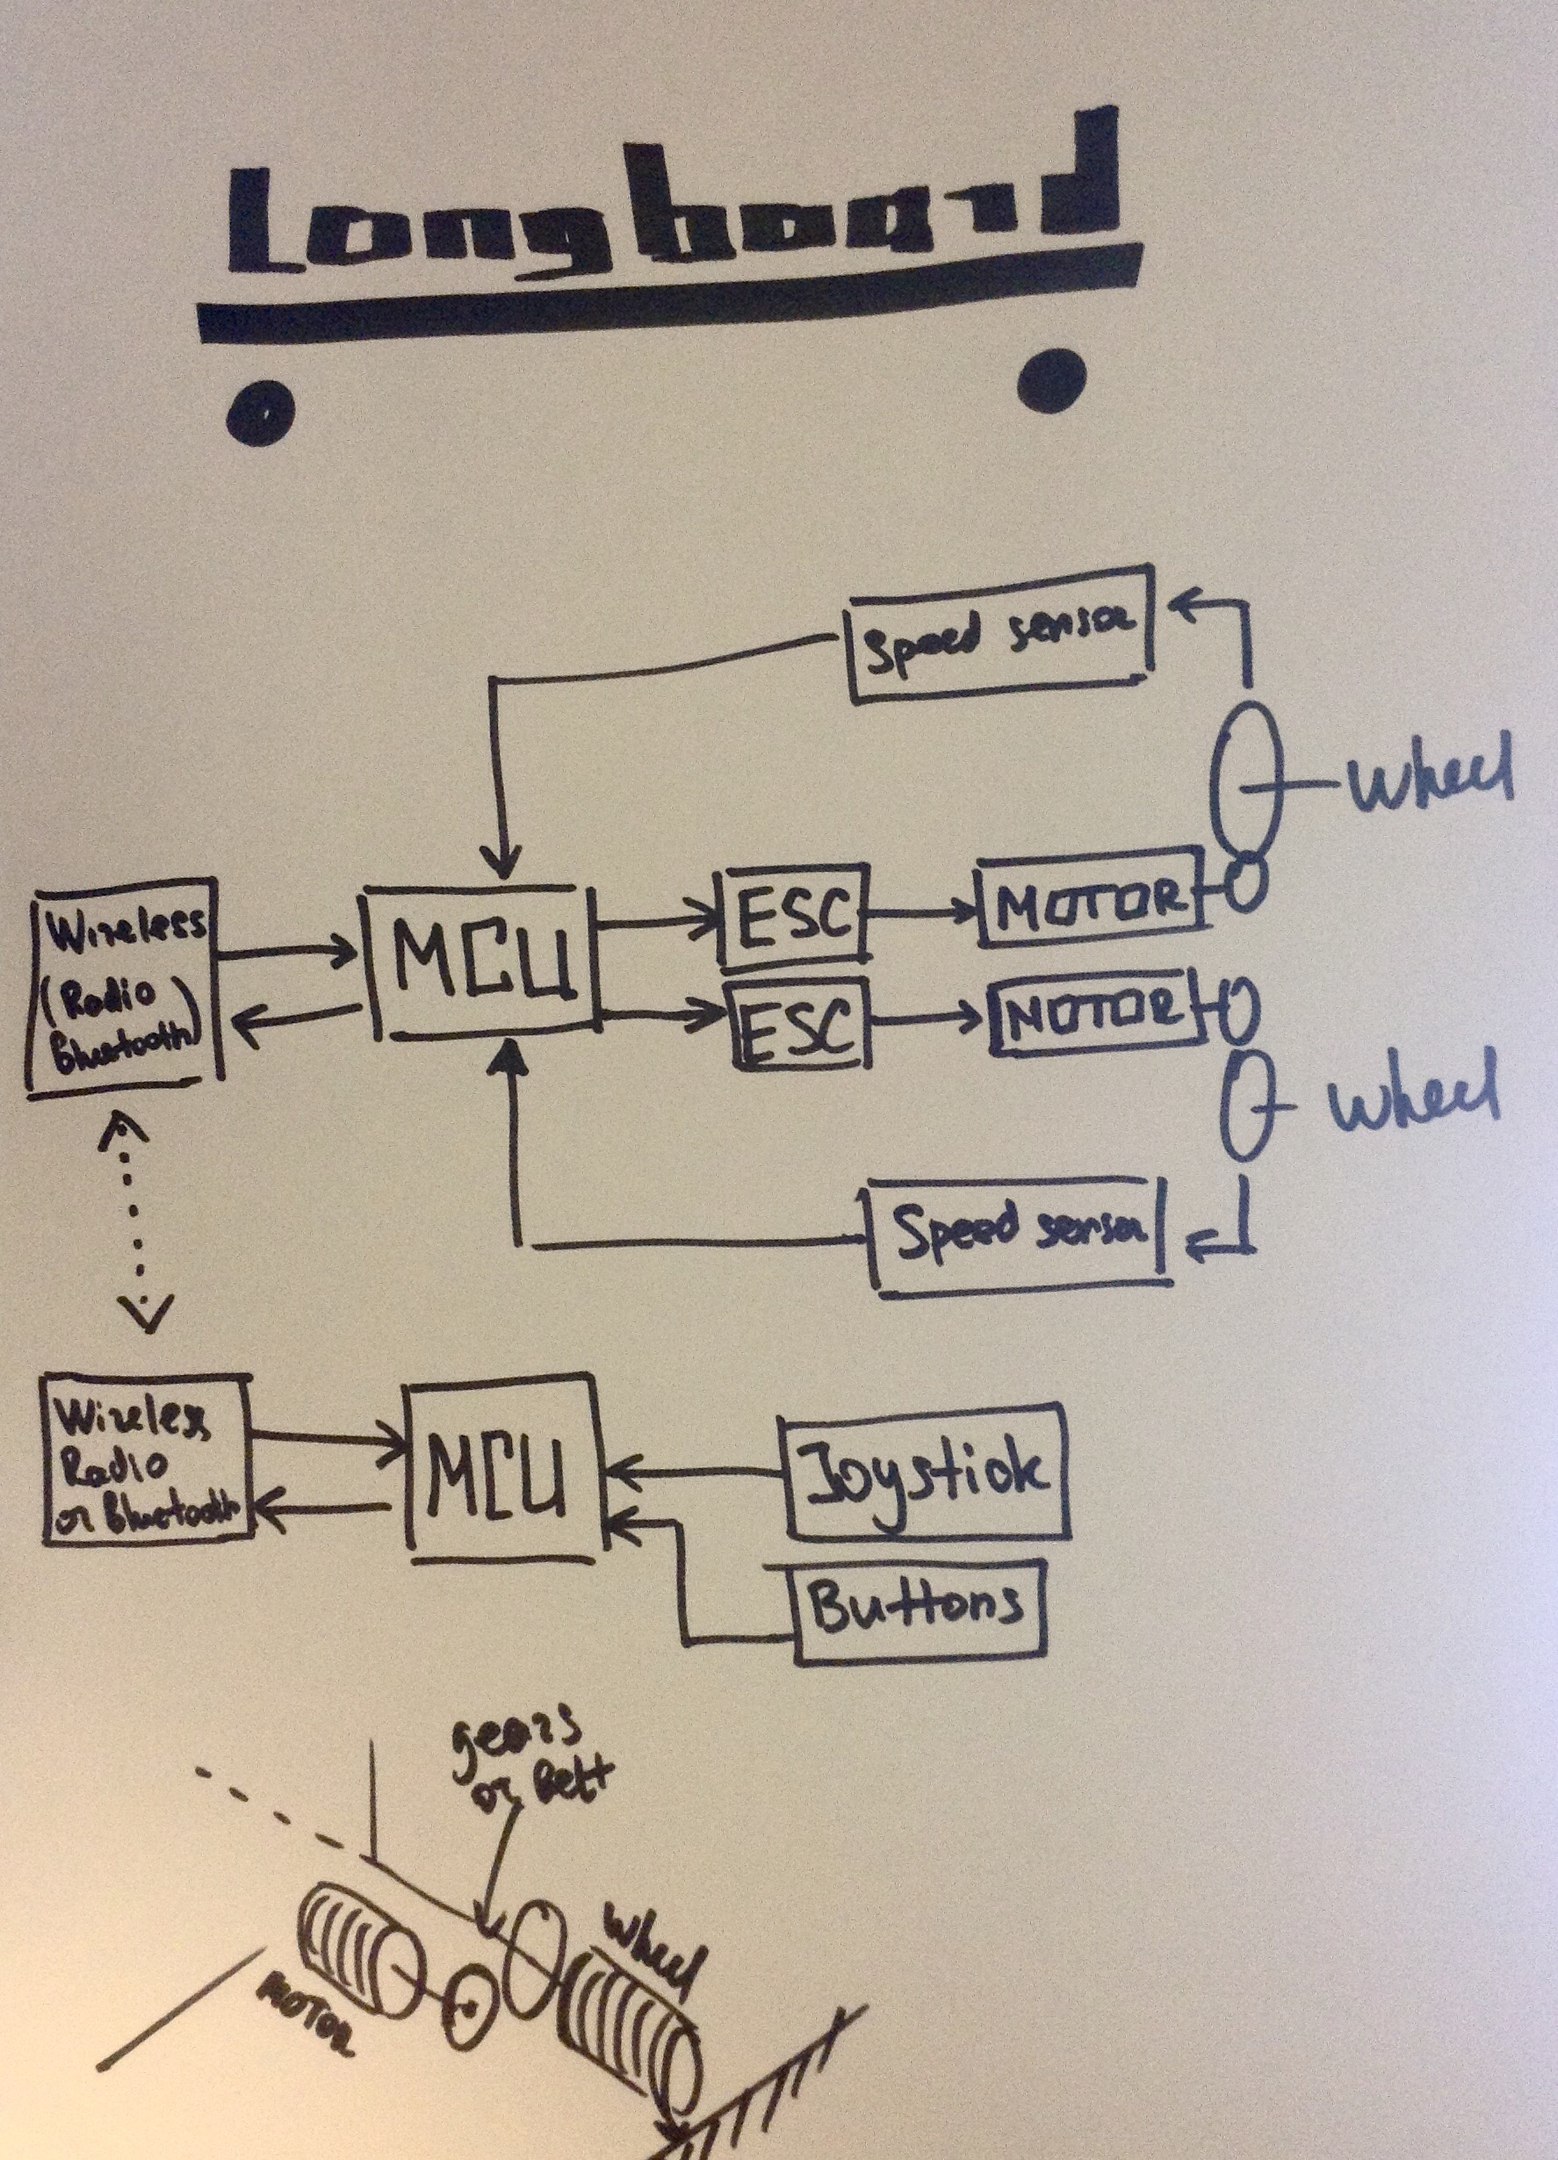 Longboard
Speed sensor
Wheel
Wireless
(Radio
Bluetooth)
MCU
ESC
MOTOR
ESC
MOTOR
Wheel
Speed sensor
Wireless
Radio
or Bluetooth
MCU
Joystick
Buttons
gears
or Belt
Wheel
MOTOR